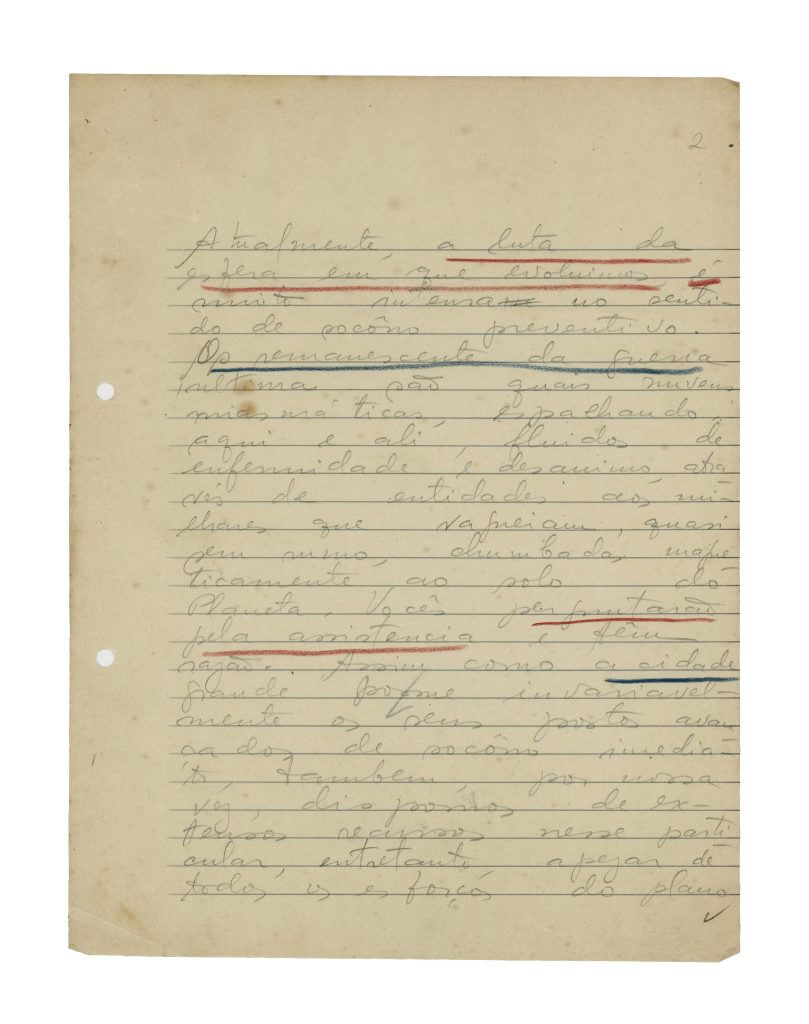 2
Atualmente, a luta da
esfera em que evoluimos, é
muito intensa no senti-
do de socôrro preventivo.
Os remanescente da guerra
ultima são quais nuvens
miasmáticas, espalhando,
aqui e ali, fluidos de
enfermidade e desanimo, atra
vés de entidades aos mi-
lhares que vagueiam, quasi
sem rumo, chumbadas magne
ticamente ao solo do
Planeta. Vocês perguntarão
pela assistencia e têm
razão. Assim como a cidade
grande possue invariavel-
mente os seus postos avan
çados de socôrro imedia-
to, tambem, por nossa
vez, dispomos de ex-
tensos recursos nesse parti
cular, entretanto, apezar de
todos os esforços do plano